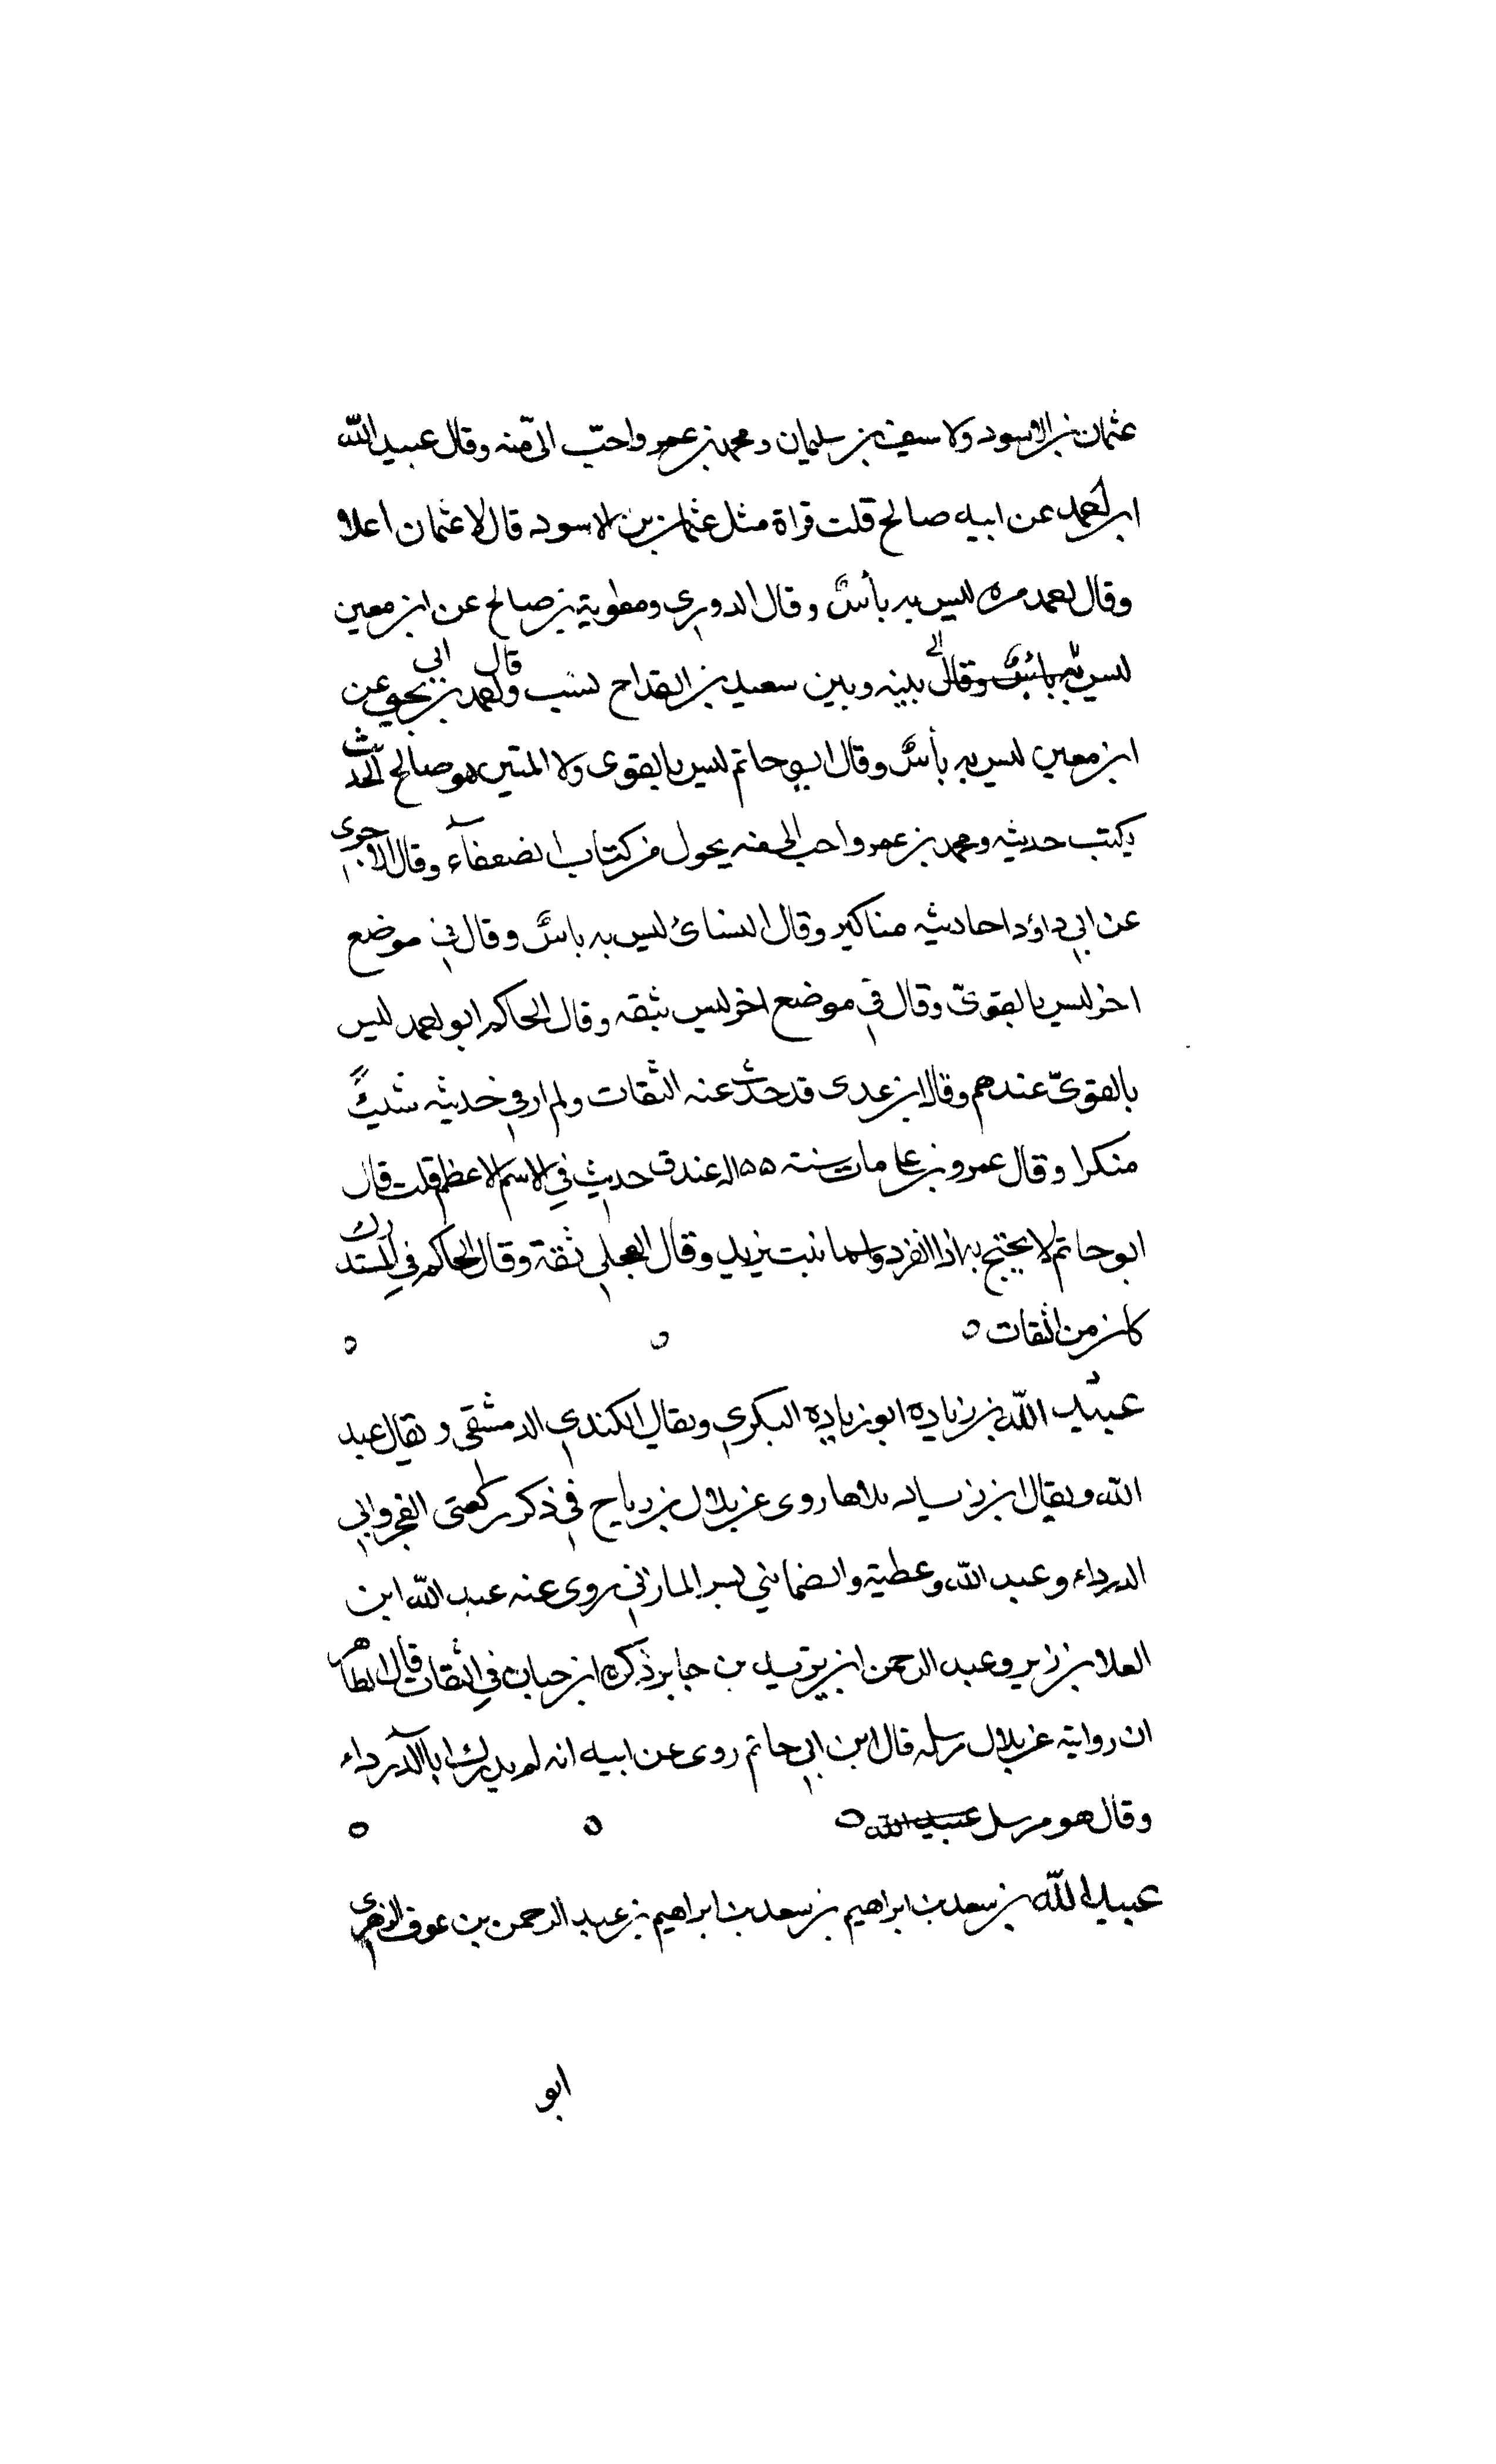 عثمان بن الاسود ولا سيف بن سليمان ومحمد بن عمرو احبّ الىّ منه وقال عبيد الله
ابن احمد عن ابيه صالح قلت تراه مثل عثمان بن الاسود قال لا عثمان اعلا
وقال احمد مره ليس به بأسٌ وقال الدوري ومعاوية بن صالح عن ابن معين
ليس به باسٌ وقال بينه وبين سعيد بن القداح نسب وقال احمد بن ابي يحيى عن
ابن معين ليس به بأسٌ وقال ابو حاتم ليس بالقوى ولا المتين هو صالح الحديث
يكتب حديثه ومحمد بن عمرو احب الى منه يحول من كتاب الضعفآء وقال الآجرى
عن ابي داؤد احاديثه مناكير وقال النسائ ليس به باسٌ وقال في موضع
اخر ليس بالقوىّ وقال في موضع اخر ليس بثقه وقال الحاكم ابو احمد ليس
بالقوىّ عندهم وقال ابن عدى قد حدّث عنه الثقات ولم ار في حديثه شيئًا
منكرا وقال عمرو بن على مات سنة ۱۵۵ له عند ق حديث في الاسم الاعظم قلت قال
ابو حاتم لا يحتج به اذا انفرد واسما بنت يزيد وقال العجلي ثقة وقال الحاكم في المستدرك
كان من الثقات ه ه ه
عبيد الله بن زياده ابو زياده البكري ويقال الكندي الدمشقي ويقال عبد
الله ويقال ابن زياد بلا ها روى عن بلال بن رباح في ذكر ركعتى الفجر وابي
الدرداء وعبد الله وعطية والضما بني بسر المازني روى عنه عبد الله ابن
العلا بن زبر وعبد الرحمن ابن يزيد بن جابر ذكره ابن حبان في الثقات قال الظاهر
ان روايته عن بلال مرسله قال ابن ابي حاتم روى عن ابيه انه لم يدرك ابا الدرداء
وقال هو مرسل عبيد الله ه ه ه
عبيد الله بن سعد بن ابراهيم بن سعد بن ابراهيم بن عبد الرحمن بن عوف الزهرى
ابو